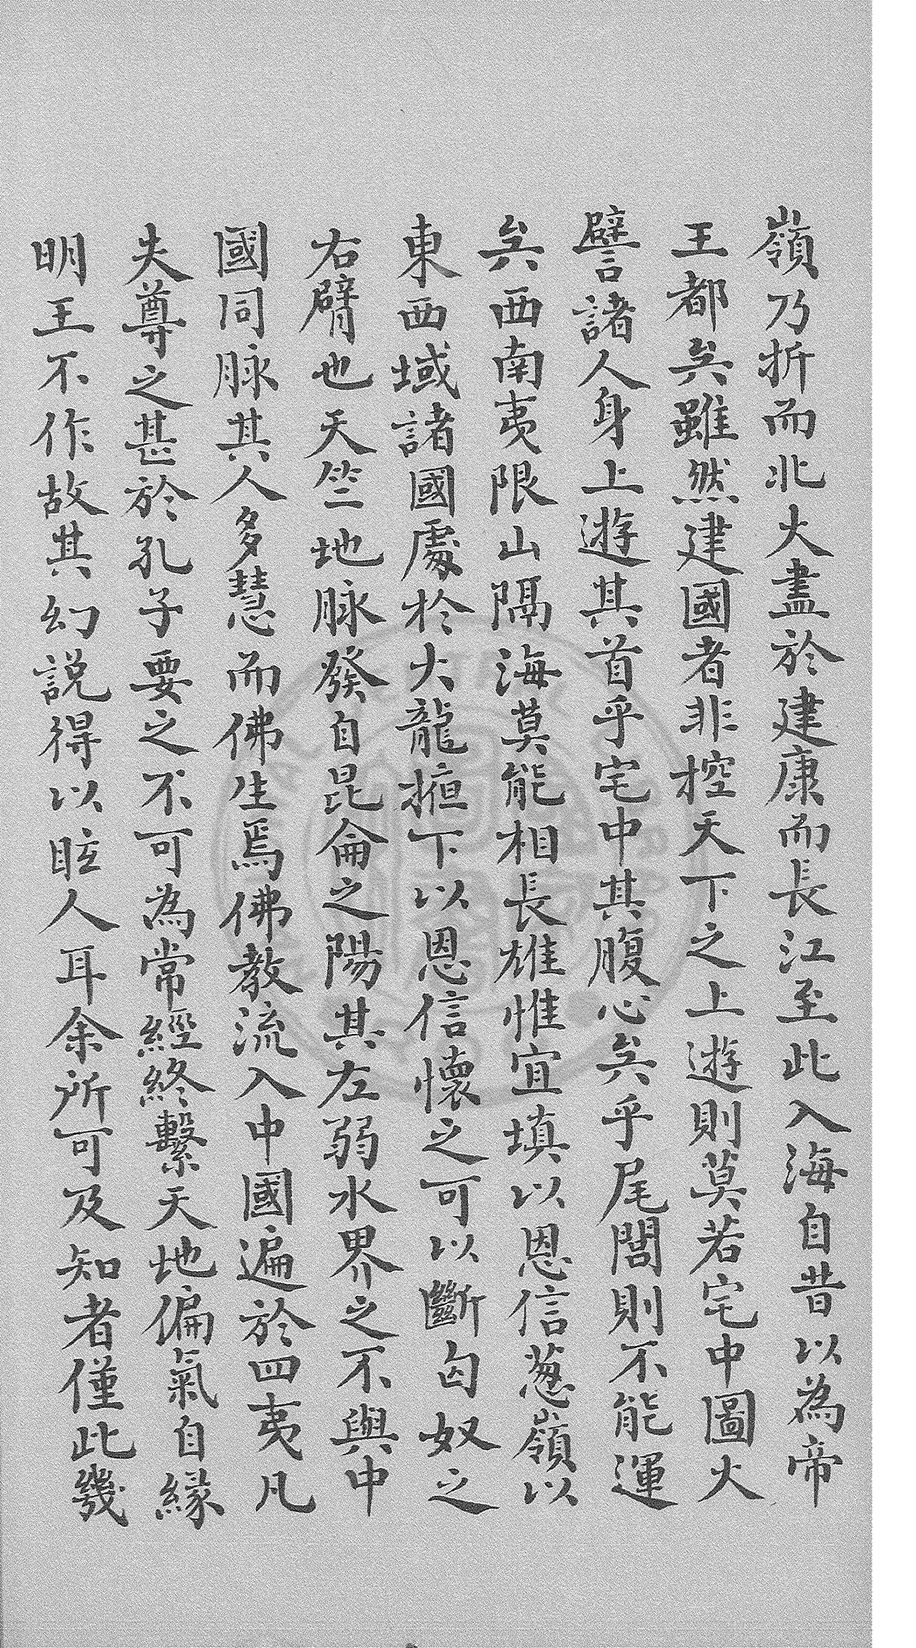 嶺乃折而北大盡於建康而長江至此入海自昔以為帝
王都矣雖然建國者非控天下之上遊則莫若宅中圖大
譬諸人身上遊其首乎宅中其腹心矣乎尾閭則不能運
矣西南夷限山隔海莫能相長雄惟宜填以恩信葱嶺以
東西域諸國處於大龍掖下以恩信懷之可以斷匈奴之
右臂也天竺地脉發自昆侖之陽其左弱水界之不與中
國同脉其人多慧而佛生焉佛教流入中國遍於四夷凡
夫尊之甚於孔子要之不可為常經終繫天地偏氣自緣
明王不作故其幻説得以眩人耳余所可及知者僅此幾